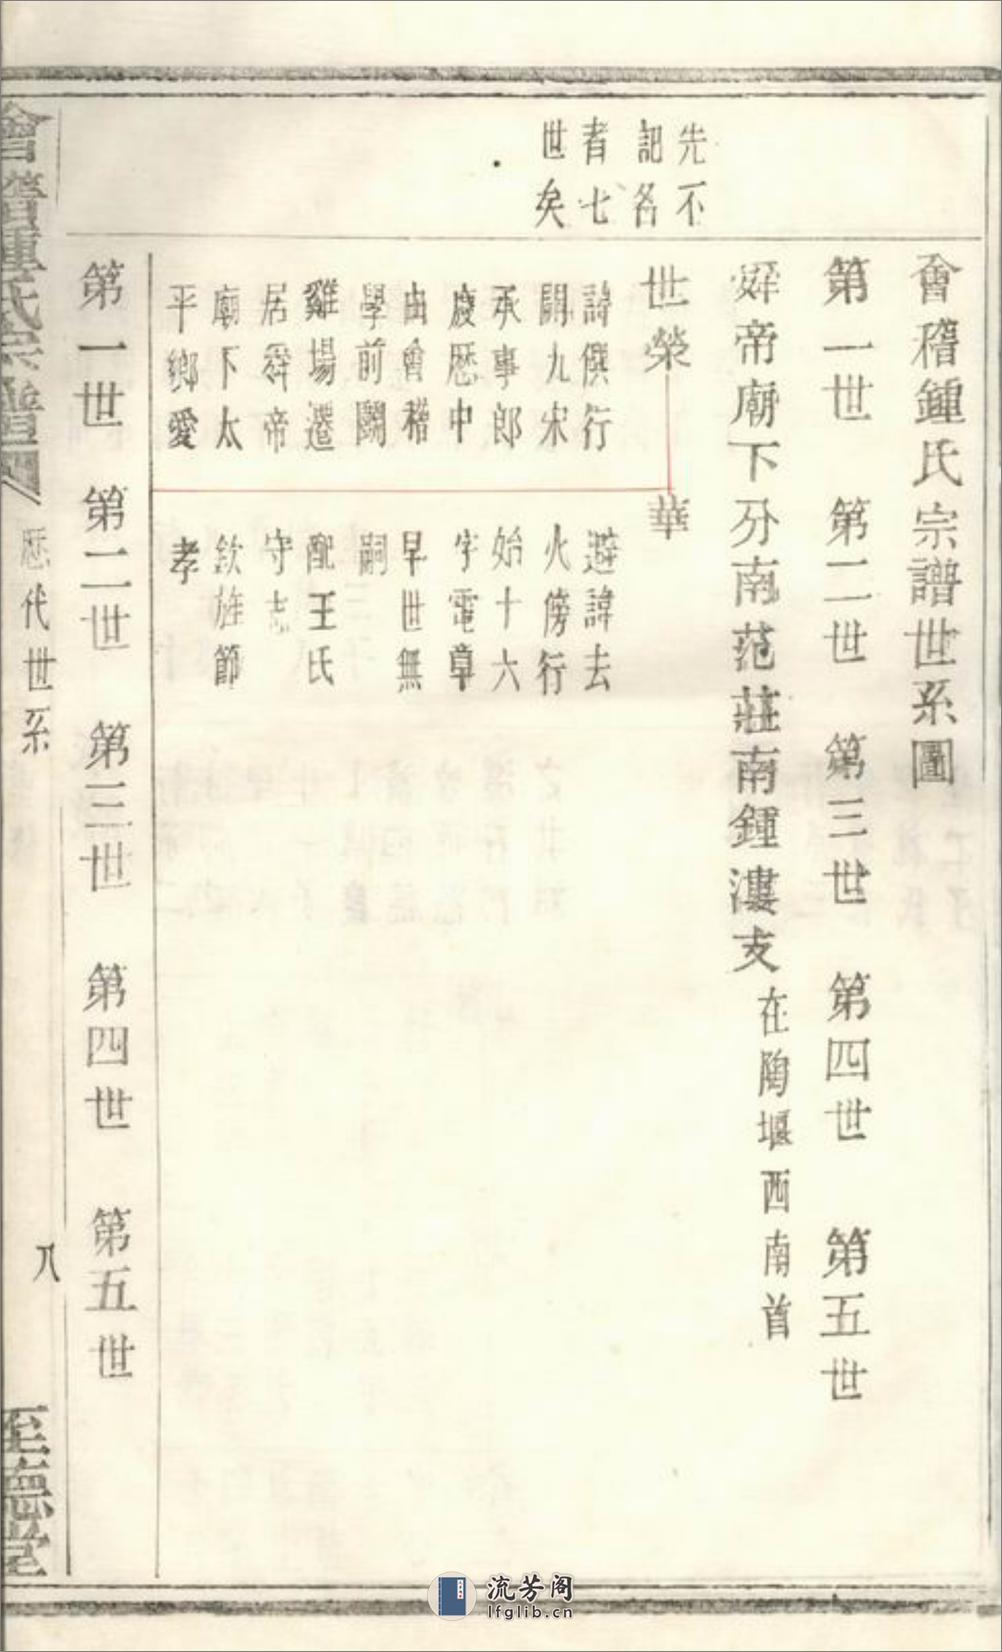 會稽鍾氏宗譜世系圖
第一世 第二世 第三世 第四世 第五世
舜帝廟下分南范莊南鍾漊支 在陶堰西南首
先不
記各
者七
世矣
世榮
諱僎行
闕九宋
承事郎
慶歷中
由會稽
學前闘
雞場遷
居舜帝
廟下太
平鄉愛
華
避諱去
火傍行
始十六
字電草
早世無
嗣
配王氏
守志
欽旌節
孝
第一世 第二世 第三世 第四世 第五世
會稽鍾氏宗譜四 歷代世系 八 至德堂
流芳阁
lfglib.cn